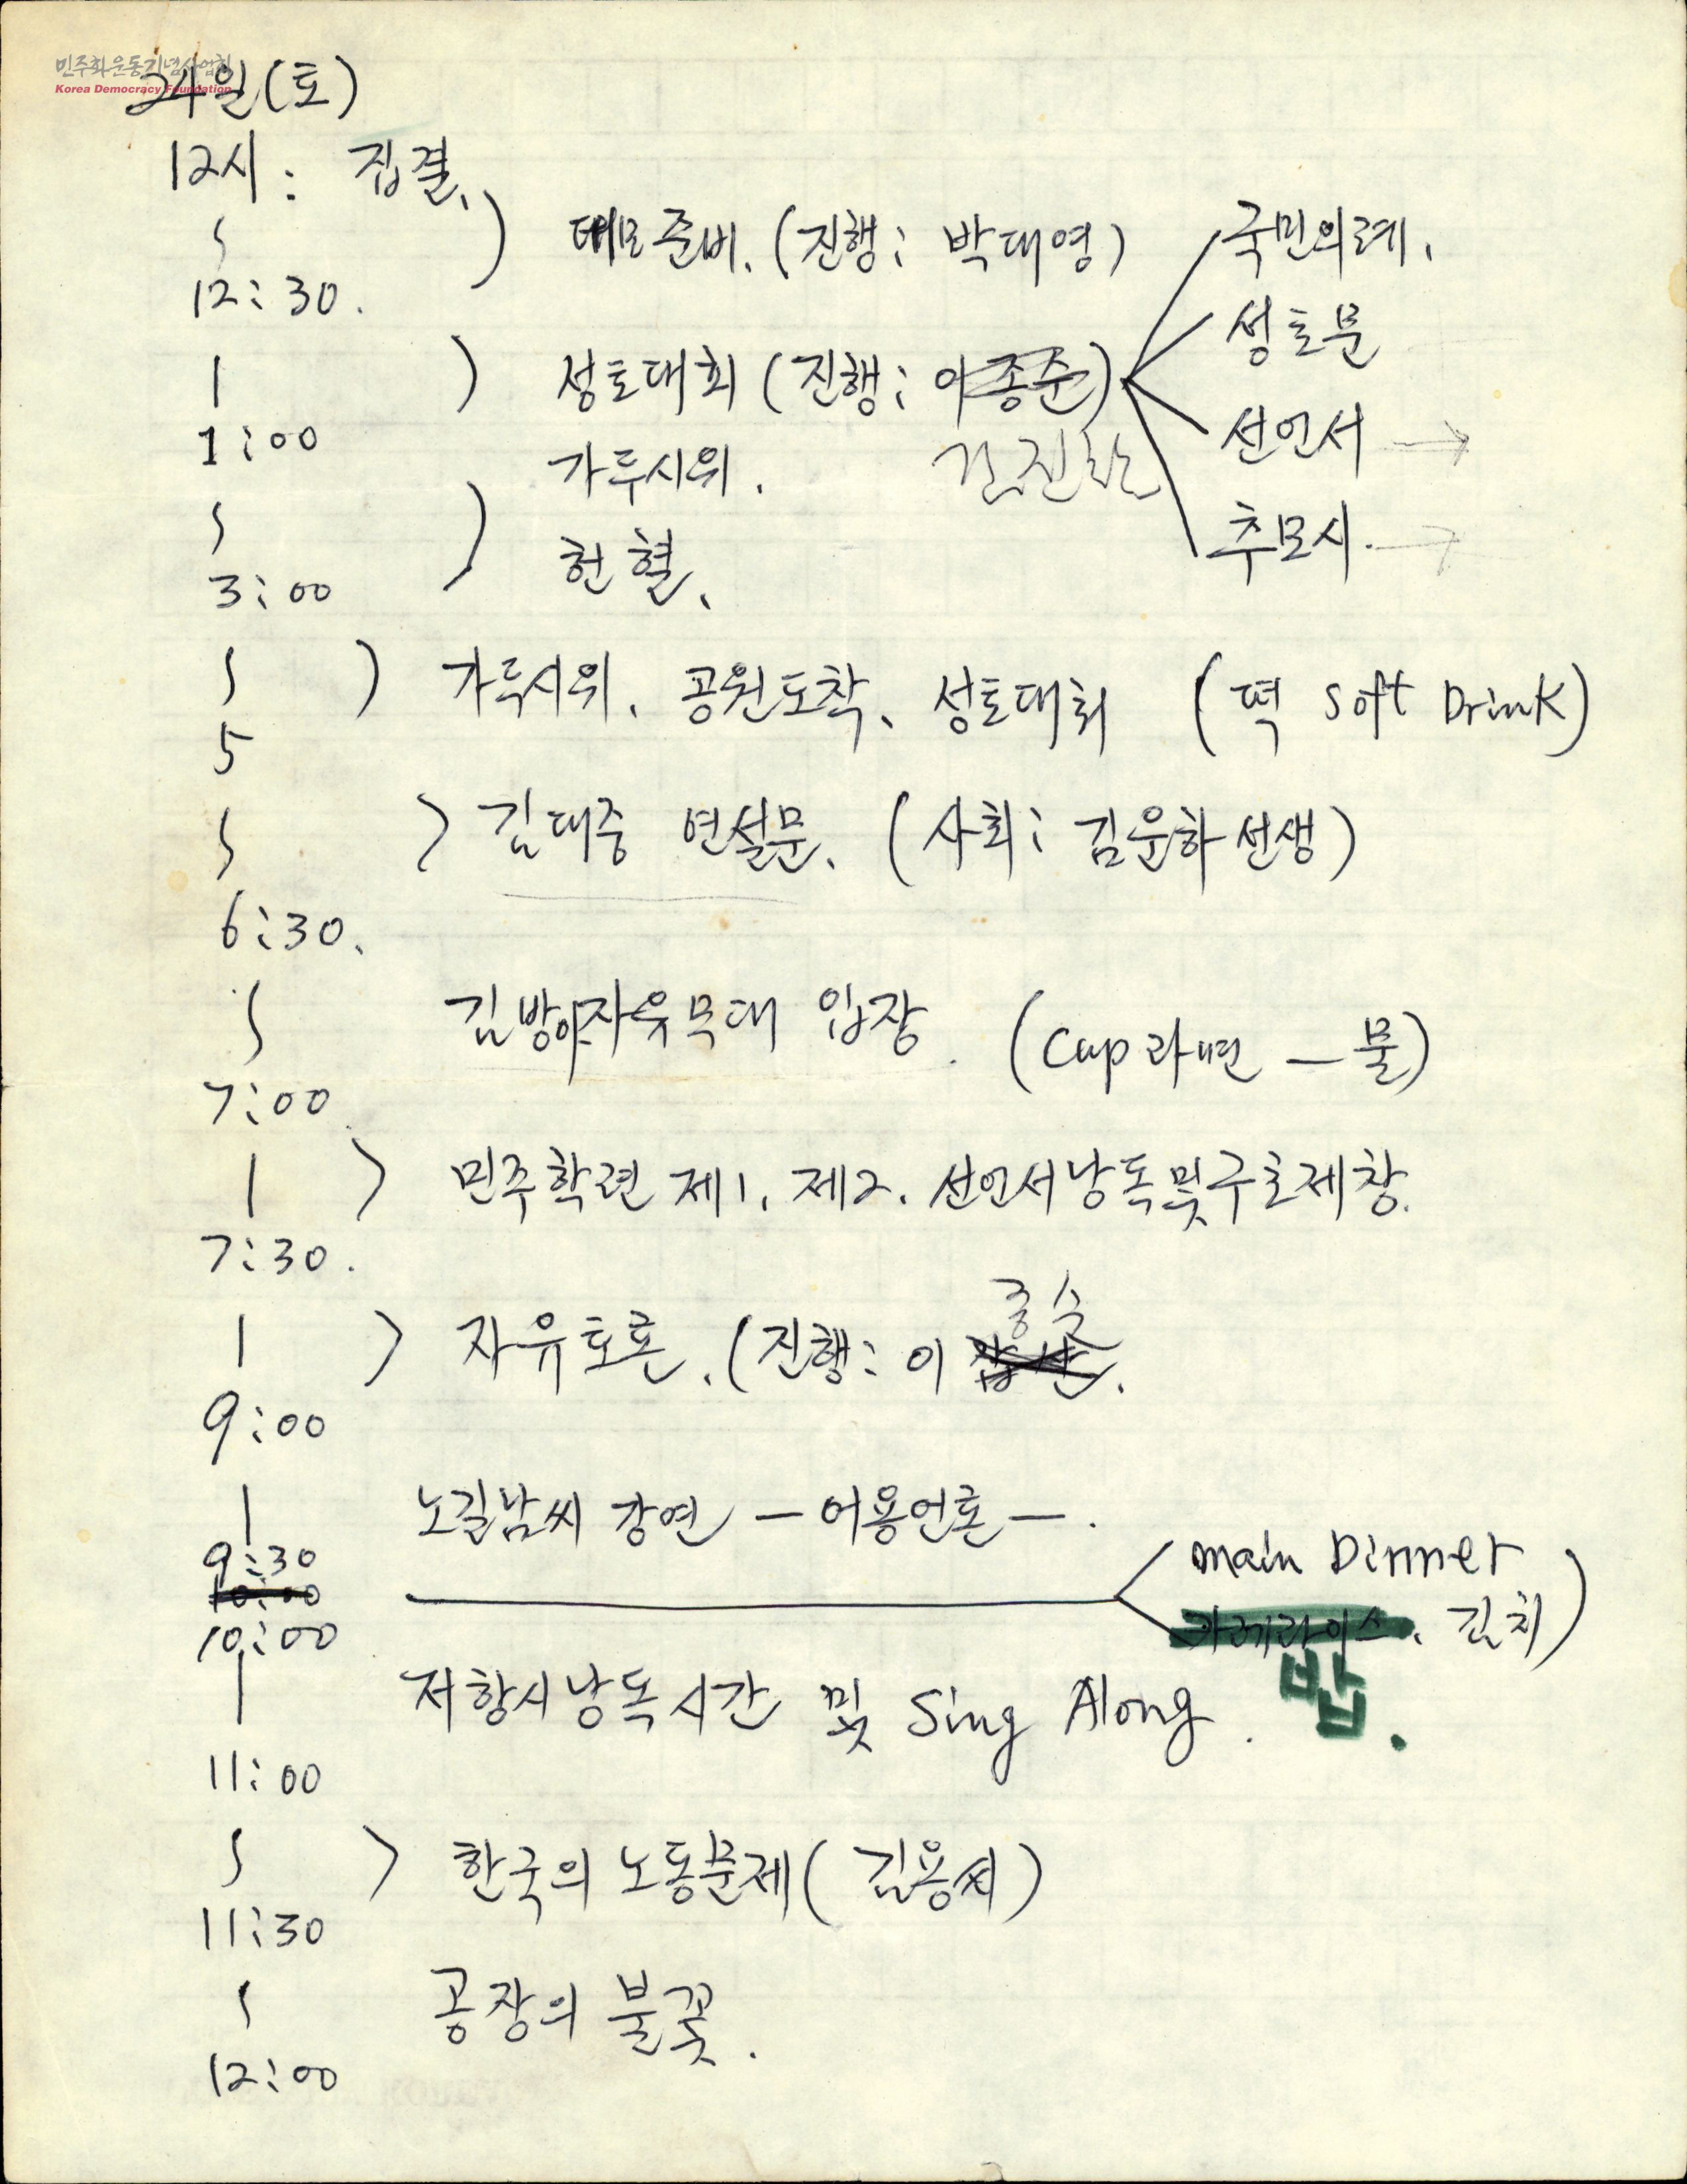 민주화운동기념사업회
Korea Democracy Foundation
24일(토)
12시 : 집결.
12:30.
데모준비. (진행: 박대영)
국민의례.
성토문
선언서 →
추모시. →
성토대회 (진행: 이종준)
1:00
가두시위.
헌혈.
3:00
가두시위. 공원도착. 성토대회 (떡 Soft Drink)
5
김대중 연설문. (사회: 김운하 선생)
6:30.
자유무대 입장. (Cup 라면 — 물)
7:00
민주학련 제1. 제2. 선언서낭독및구호제창.
7:30.
종수
자유토론. (진행: 이
9:00
노길남씨 강연 — 어용언론 — .
9:30
10:00
10:00
main Dinner
카레라이스. 김치)
밥.
저항시낭독시간 및 Sing Along.
11:00
한국의 노동문제 (김용씨)
11:30
공장의 불꽃.
12:00